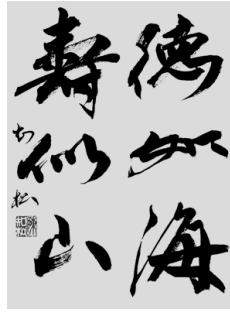 德如海
壽似山